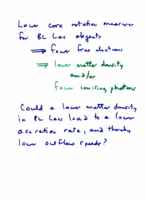 Lower core rotation measures
for BL Lac objects
⟹ fewer free electrons
⟹ lower matter density
and/or
fewer ionizing photons
Could a lower matter density
in BL Lacs lead to a lower
accretion rate, and thereby
lower outflow speeds?